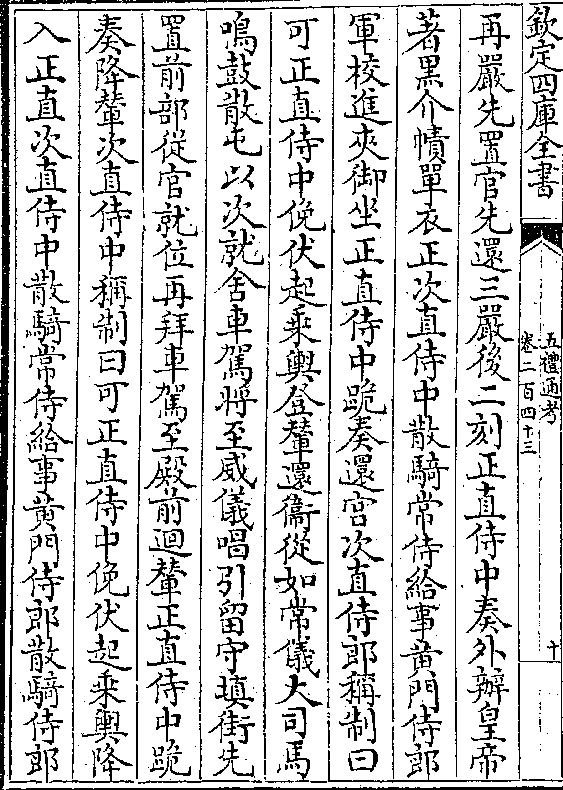 欽定四庫全書
五禮通考
卷二百四十三
十
再嚴先置官先還三嚴後二刻正直侍中奏外辦皇帝
著黑介幘單衣正次直侍中散騎常侍給事黄門侍郎
軍校進夾御坐正直侍中跪奏還宫次直侍郎稱制曰
可正直侍中俛伏起乘輿登輦還衞從如常儀大司馬
鳴鼓散屯以次就舍車駕將至威儀唱引留守填街先
置前部從官就位再拜車駕至殿前迴輦正直侍中跪
奏降輦次直侍中稱制曰可正直侍中俛伏起乘輿降
入正直次直侍中散騎常侍給事黄門侍郎散騎侍郎